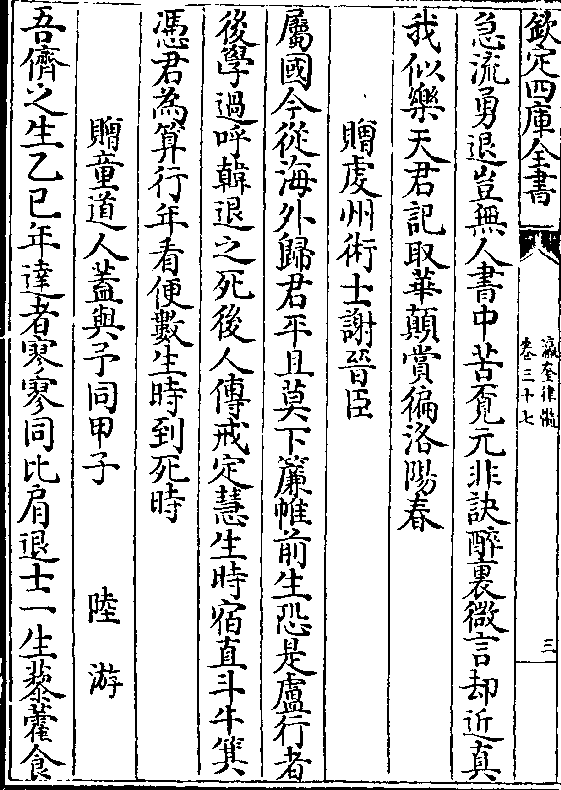 欽定四庫全書
瀛奎律髓
卷三十七
三
急流勇退豈無人書中苦覓元非訣醉裏微言却近真
我似樂天君記取華顛賞徧洛陽春
贈䖏州術士謝晉臣
屬國今從海外歸君平且莫下簾帷前生恐是盧行者
後學過呼韓退之死後人傳戒定慧生時宿直斗牛箕
憑君為算行年看便數生時到死時
贈童道人蓋與予同甲子 陸游
吾儕之生乙巳年達者寥寥同比肩退士一生藜藿食